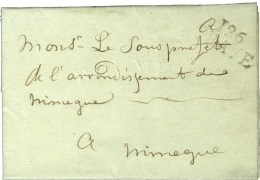 Monsr. Le Sous prefet
de l'arrondissement de
nimegue
A
Nimegue